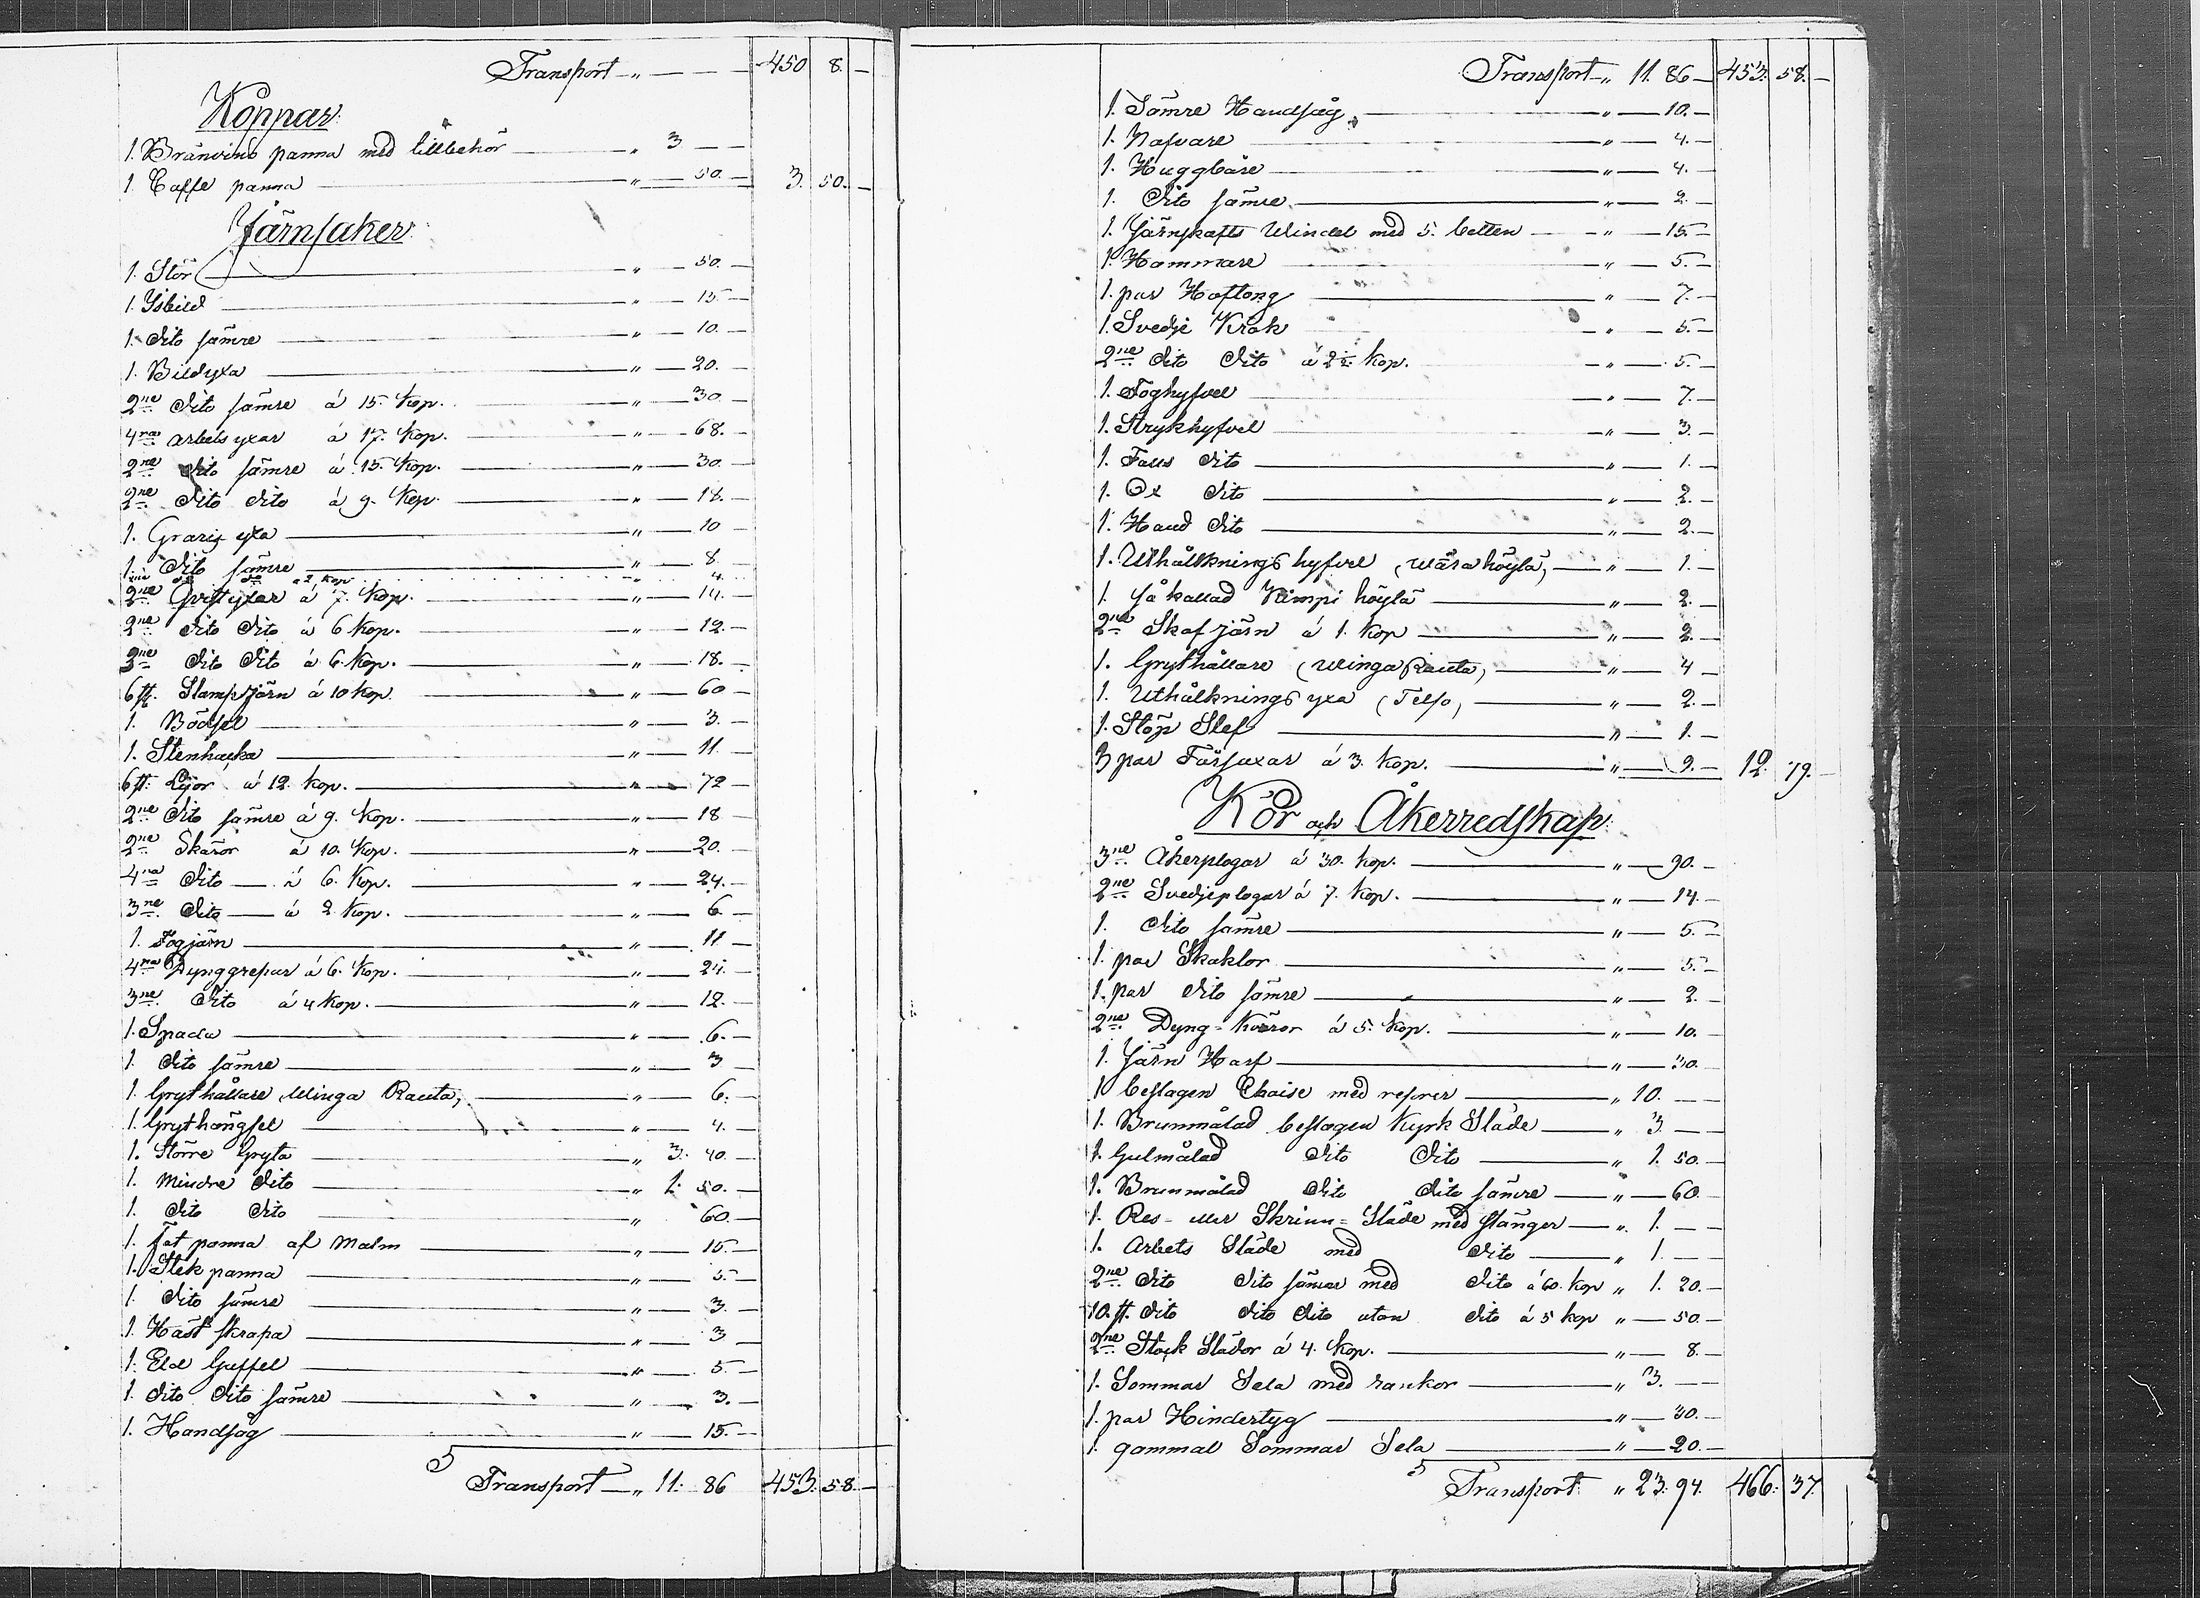 Transport „ — 450 8. —
Koppar:
1. Bränvins panna med tillbehör „ 3 —
1. Caffe panna „ — 50. — 3. 50. —
Järnsaker
1. Stör „ — 50. —
1. Isbild „ — 15 —
1. Dito sämre „ — 10. —
1. Bildyxa „ — 20. —
2ne Dito sämre á 15. Kop. „ — 30 —
4ra arbets yxar á 17. Kop. „ — 68. —
2ne Dito sämre á 15. Kop. „ — 30.
2ne Dito Dito á 9. Kop „ — 18. —
1. yxa „ — 10 —
1. Dito sämre „ — 8. —
2ne do do á 2 kop „ 4. —
2ne Qvistyxar á 7. Kop. „ — 14. —
2ne Dito Dito á 6 Kop. „ — 12. —
3ne Dito Dito á 6. Kop. „ — 18. —
6 st. Stampjärn á 10 Kop. „ — 60 —
1. Bödsel „ — 3. —
1. Stenhacka „ — 11. —
6 st. Lijor á 12. Kop. „ — 72 —
2ne Dito sämre á 9. Kop. „ — 18 —
2ne Skäror á 10. Kop. „ — 20. —
4ra Dito — á 6. Kop. „ — 24. —
3ne Dito — á 2 Kop. „ — 6 —
1. Fogjärn „ — 11 —
4ra Dynggrepar á 6. Kop. „ — 24. —
3ne Dito á 4 Kop. „ — 12. —
1. Spada „ — 6. —
1. Dito sämre „ — 3 —
1 Grythållare, Winga Rauta, „ — 6. —
1. Grythängsel „ — 4. —
1. Större Gryta „ 3. 40. —
1. Mindre Dito „ 1. 50. —
1. Dito Dito „ 60. —
1. Fat panna af Malm „ — 15. —
1. Stek panna „ — 5. —
1. Dito sämre „ — 3. —
1. Häst skrapa „ — 3 —
1. Eld Gaffel „ — 5. —
1. Dito Dito sämre „ — 3. —
1. Handsåg „ — 15. —
Transport „ 11. 86 453. 58. —
Transport „ 11. 86 — 453. 58. —
1. Sämre Handsåg „ — 10. —
1. Nafvare „ — 4. —
1. Huggbåre „ — 4. —
1. Dito sämre „ — 2. —
1. Järnskafts Windel med 5. betten „ — 15. —
1. Hammare „ — 5. —
1. par Hoftong „ — 7. —
1. Svedje Krok „ — 5. —
2ne Dito Dito á 2½ Kop. „ — 5. —
1. Foghyfvel „ — 7. —
1. Strykhyfvel „ — 3. —
1. Falls Dito „ — 1. —
1. Ox Dito „ — 2. —
1. Hand Dito „ — 2. —
1. Uthålknings hyfvel (Wärahöylä) „ — 1. —
1. så kallad Kimpi höylä „ — 2. —
2ne Skafjärn á 1. Kop „ — 2. —
1. Grythållare (Winga Rauta) „ — 4 —
1. Uthålknings yxa (Telso) „ — 2. —
1. Stöp Slef „ — 1. —
3 par Fårsaxar á 3. Kop. „ — 9. — 12. 79. —
Kör och Åkerredskap:
3ne Åkerplogar á 30. Kop. „ — 90. —
2ne Svedjeplogar á 7. Kop. „ — 14. —
1. Dito sämre „ — 5. —
1. par Skaklor „ — 5. —
1. par Dito sämre „ — 2. —
2ne Dyng-Kärror á 5. Kop. „ — 10. —
1. Järn Harf „ — 30. —
1 beslagen Chaise med „ 10. —
1. Brunmålad beslagen Kyrk Släde „ 3. —
1. Gulmålad Dito Dito „ 1. 50. —
1. Brunmålad Dito Dito sämre „ — 60. —
1. Res- eller Skrinn-Släde med stänger „ 1. —
1. Arbets Släde med Dito „ 1. —
2ne Dito Dito sämre med Dito á 60. Kop „ 1. 20. —
10. st. Dito Dito Dito utan Dito á 5 Kop „ — 50. —
2ne Stock Slädor á 4. Kop. „ — 8. —
1. Sommar Sela med rankor „ 3. —
1. par Hindertyg „ — 30. —
1. gammal Sommar Sela „ — 20. —
Transport: „ 23. 94. 466. 37.